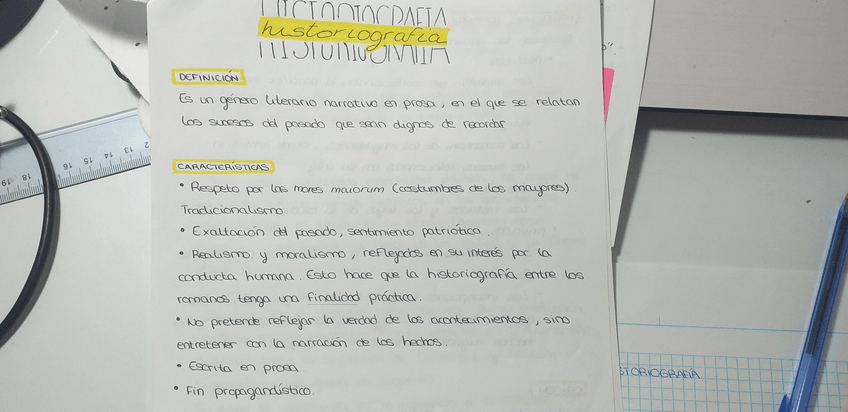 HISTORIOGRAFIA
historiografía
DEFINICIÓN
Es un género literario narrativo en prosa, en el que se relatan
los sucesos del pasado que sean dignos de recordar
CARACTERÍSTICAS
• Respeto por las mores maiorum (costumbres de los mayores).
Tradicionalismo.
• Exaltación del pasado, sentimiento patriótico.
• Realismo y moralismo, reflejados en su interés por la
conducta humana. Esto hace que la historiografía entre los
romanos tenga una finalidad práctica.
• No pretende reflejar la verdad de los acontecimientos, sino
entretener con la narración de los hechos.
• Escrita en prosa
• Fin propagandístico.
STORIOGRAFÍA
12 13 14 15 16 18 19